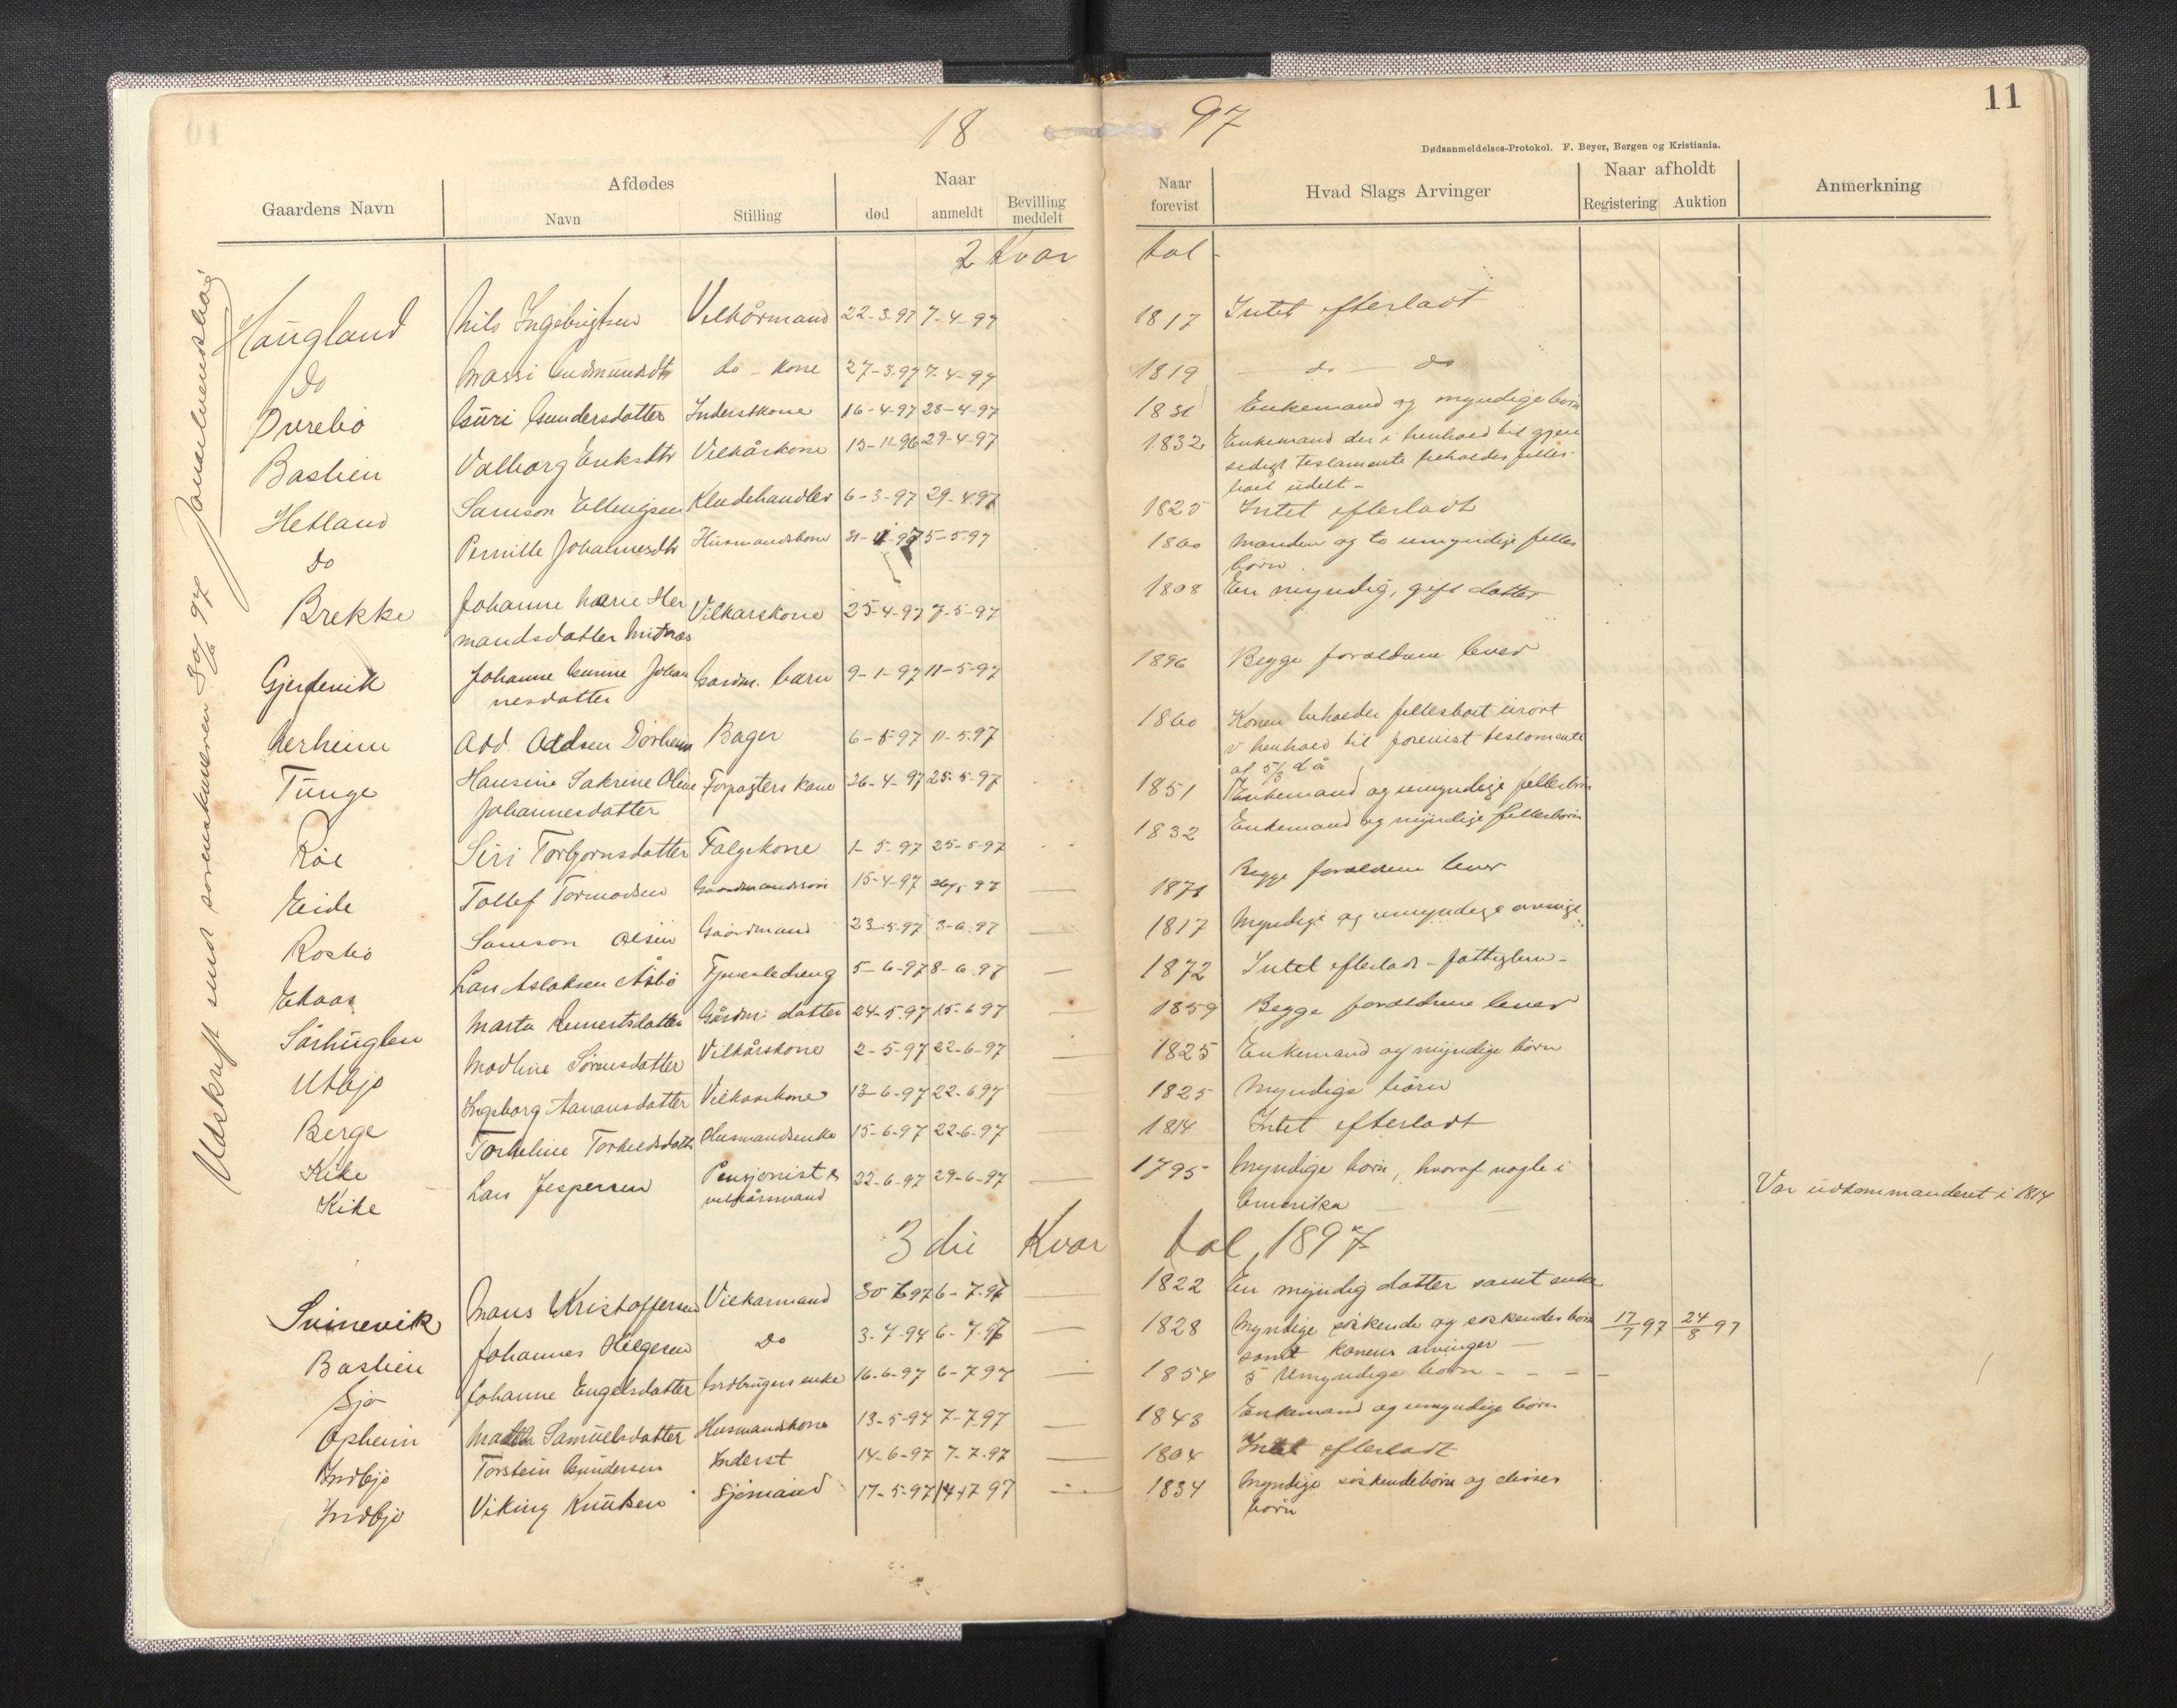 18 97
11
Dødsanmeldelses-Protokol. F. Beyer, Bergen og Kristiania.
Gaardens Navn
Afdødes
Navn
Stilling
Naar
død
anmeldt
Bevilling meddelt
Naar forevist
Hvad Slags Arvinger
Naar afholdt
Registering
Auktion
Anmerkning
Udskrift sund sorenskriveren 30/6 97
2 Kvar tal
Haugland Nils Ingebrigtsen Vilkårmand 22-3-97 7-4-97 1817 Intet efterladt
Do Massi Gudmundsdtr do - kone 27-3-97 7-4-97 1819 — do — do
Durebø Guri Gundersdatter Inderstkone 16-4-97 28-4-97 Enkemand og myndige børn
Bastlien Valborg Eriksdtr Vilkårkone 15-11-96 29-4-97 1832 Enkemand der i henhold til gjen
sidigt testamente beholder felles-
boet udelt -
Hetland Samson Ellingsen Kludehandler 6-3-97 29-4-97 1825 Intet efterladt
Do Pernille Johannesdtr Husmandskone 5-5-97 1860 Manden og to umyndige felles
børn.
Brekke Johanne Marie Her
mandsdatter Vilkarskone 25-4-97 7-5-97 1808 En myndig, gift datter
Gjerdevik Johanne Gurine Johan
nesdatter Gardm. barn 9-1-97 11-5-97 1896 Begge forældrene lever
Odd Oddsen Bager 11-5-97 1860 Konen beholder fellesboet urørt
i henhold til forevist testamente
af 5/3 d å
Tunge Hansine Sakrine Oline
Johannesdatter Forpagters kone 26-4-97 25-5-97 1851 Enkemand og umyndige fellesbørn
Røe Siri Torbjornsdatter Falgekone 1-5-97 25-5-97 1832 Enkemand og myndige fellesbørn
Eide Tollef Tormodsen Gaardmandssøn 15-4-97 Begge forældrene lever
Rosbø Samson Olsen Gaardmand 23-5-97 3-6-97 1817 Myndige og umyndige arvinge
Lars Aslaksen Åsbø Tjenestedreng 5-6-97 8-6-97 1872 Intet efterladt - fattiglem -
Marta Reinertsdatter Gårdm. datter 24-5-97 15-6-97 1859 Begge forældrene lever
Sårhuglen Madline Sørensdatter Vilkårskone 2-5-97 22-6-97 1825 Enkemand og myndige børn
Utbjo Ingeborg Aanansdatter Vilkaarkone 13-6-97 22-6-97 1825 Myndige børn
Berge Torkeline Torkildsdatter Husmandsenke 15-6-97 22-6-97 1814 Intet efterladt
Kike
Kike Lars Jespersen Pensjonist &
vilkårsmand 22-6-97 29-6-97 1795 Myndige børn, hvoraf nogle i
Amerika Var udkommanderet i 1814
3die Kvar tal, 1897
Svinevik Mons Kristoffersen Vilkarmand 6-7-97 1822 En myndig datter samt enke
Bastlien Johannes Helgesen Do 3-7-97 6-7-97 1828 Myndige søskende og søskendes børn
samt konens arvinger 17/7 97 24/8 97
Sjo Johanne Engelsdatter Indbrugers enke 16-6-97 6-7-97 1854 5 umyndige børn - - - -
Opheim Samuelsdatter Husmandskone 13-5-97 7-7-97 1843 Enkemand og umyndige børn
Indbjo Torstein Gundersen Inderst 14-6-97 7-7-97 1804 Intet efterladt
Indbjo Viking Knutsen Sjømand 17-5-97 14-7 97 1834 Myndige søskendebørn og disses
børn